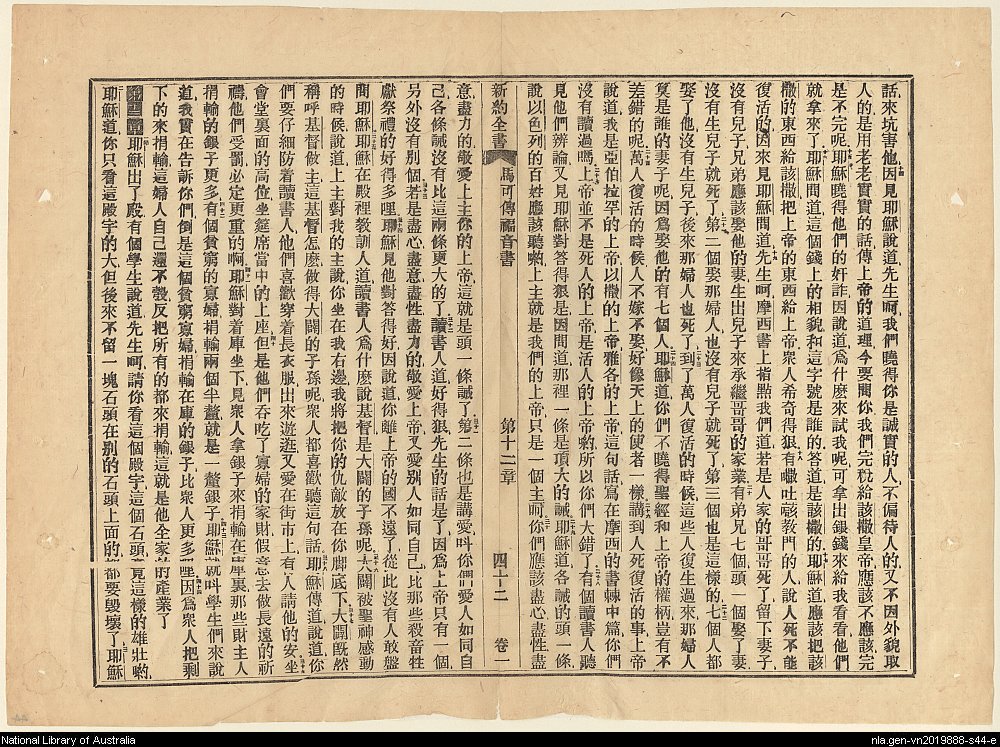 話來坑害他因見耶穌說道先生呵我們曉得你是誠實的人不偏待人的又不因外貌取
人的是用老老實實的話傳上帝的道理今要問你我們完稅給該撒皇帝應該不應該完
是不完呢耶穌曉得他們的奸詐因說道爲什麽來試我呢可拿出銀錢來給我看看他們
就拿來了耶穌問道這個錢上的相貌和這字號是誰的答道是該撒的耶穌道應該把該
撒的東西給該撒把上帝的東西給上帝衆人希奇得狠有㗮吐該教門的人說人死不能
復活的因來見耶穌問道先生呵摩西書上指點我們道若是人家的哥哥死了留下妻子
沒有兒子兄弟應該娶他的妻生出兒子來承繼哥哥的家業有弟兄七個頭一個娶了妻
沒有生兒子就死了第二個娶那婦人也沒有兒子就死了第三個也是這樣的七個人都
娶了他沒有生兒子後來那婦人也死了到了萬人復活的時候這些人復生過來那婦人
算是誰的妻子呢因爲娶他的有七個人耶穌道你們不曉得聖經和上帝的權柄豈有不
差錯的呢萬人復活的時候人不嫁不娶好像天上的使者一樣講到人死復活的事上帝
說道我是亞伯拉罕的上帝以撒的上帝雅各的上帝這句話寫在摩西的書棘中篇你們
沒有讀過嗎上帝並不是死人的上帝是活人的上帝喲所以你們大錯了有個讀書人聽
見他們辨論又見耶穌對答得狠是因問道那裡一條是頂大的誡耶穌道各誡的頭一條
說以色列的百姓應該聽喲上主就是我們的上帝只是一個主呵你們應該盡心盡性盡
新約全書 馬可傳福音書 第十二章 四十二 卷一
意盡力的敬愛上主你的上帝這就是頭一條誡了第二條也是講愛叫你們愛人如同自
己各條誡沒有比這兩條更大的了讀書人道好得狠先生的話是了因爲上帝只有一個
另外沒有別個若是盡心盡意盡性盡力的敬愛上帝又愛別人如同自己比那些殺畜牲
獻祭禮的好得多哩耶穌見他對答得好因說道你離上帝的國不遠了從此沒有人敢盤
問耶穌耶穌在殿裡教訓人道讀書人爲什麽說基督是大闢的子孫呢大闢被聖神感動
的時候說道上主對我的主說你坐在我右邊我將把你的仇敵放在你脚底下大闢旣然
稱呼基督做主這基督怎麽做得大闢的子孫呢衆人都喜歡聽這句話耶穌傳道說道你
們要仔細防着讀書人他們喜歡穿着長衣服出來遊逛又愛在街市上有人請他的安坐
會堂裏面的高位坐筵席當中的上座但是他們吞吃了寡婦的家財假意去做長遠的祈
禱他們受罰必定更重的啊耶穌對着庫坐下見衆人拿銀子來捐輸在庫裏那些財主人
捐輸的銀子更多有個貧窮的寡婦捐輸兩個半釐就是一釐銀子耶穌就叫學生們來說
道我實在告訴你們倒是這個貧窮寡婦捐輸在庫的銀子比衆人更多哩因爲衆人把剩
下的來捐輸這婦人自己還不彀反把所有的都來捐輸這就是他全家的產業了
第十三章耶穌出了殿有個學生說道先生呵請你看這個殿宇這個石頭竟這樣的雄壯喲
耶穌道你只看這殿宇的大但後來不留一塊石頭在別的石頭上面的都要毀壞了耶穌
National Library of Australia
nla.gen-vn2019888-s44-e